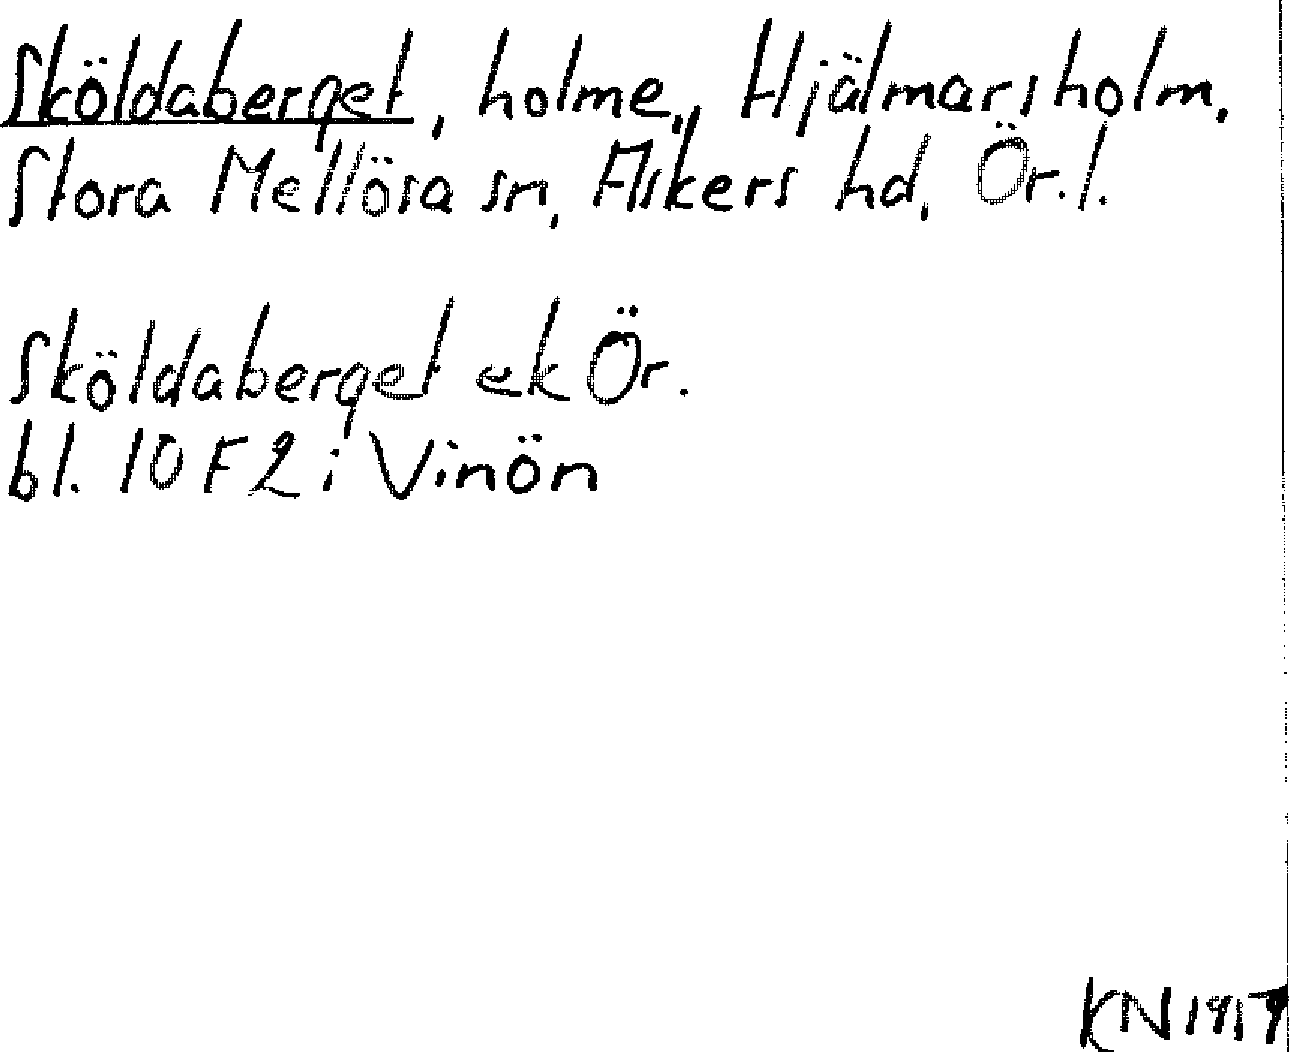 Sköldaberget, holme, Hjälmarsholm,
Stora Mellösa sn, Askers hd, Ör. l.
Sköldaberget ek Ör.
bl. 10 F 2 i Vinön
KN